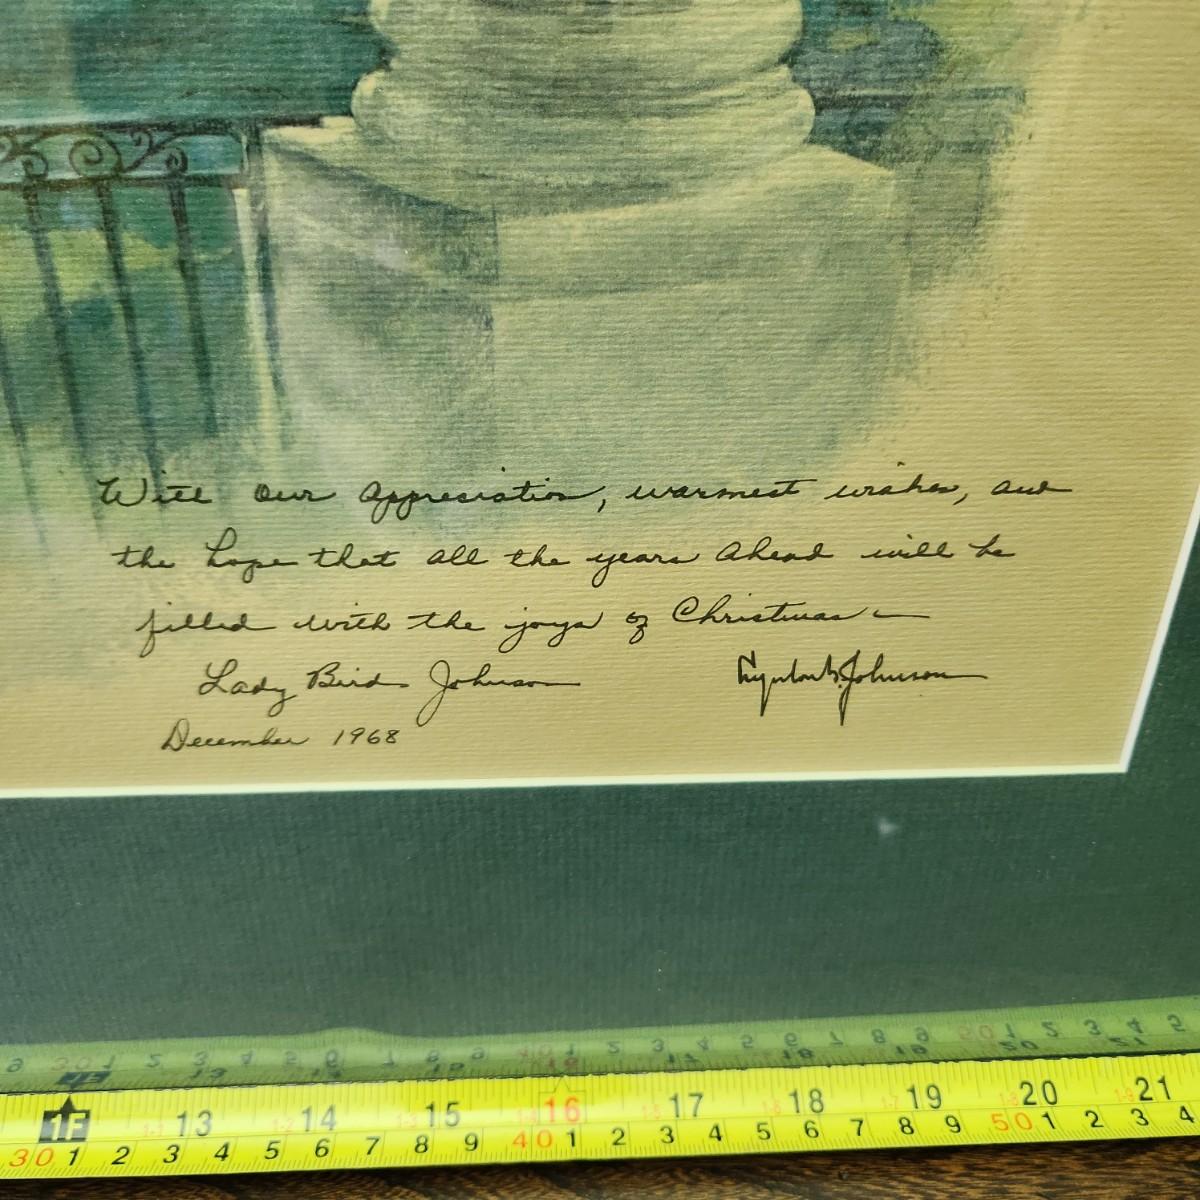 With our appreciation, warmest wishes, and
the hope that all the years ahead will be
filled with the joys of Christmas —
Lady Bird Johnson Lyndon B. Johnson
December 1968
1F 13 14 15 16 17 18 19 20 21
30 1 2 3 4 5 6 7 8 9 40 1 2 3 4 5 6 7 8 9 50 1 2 3 4